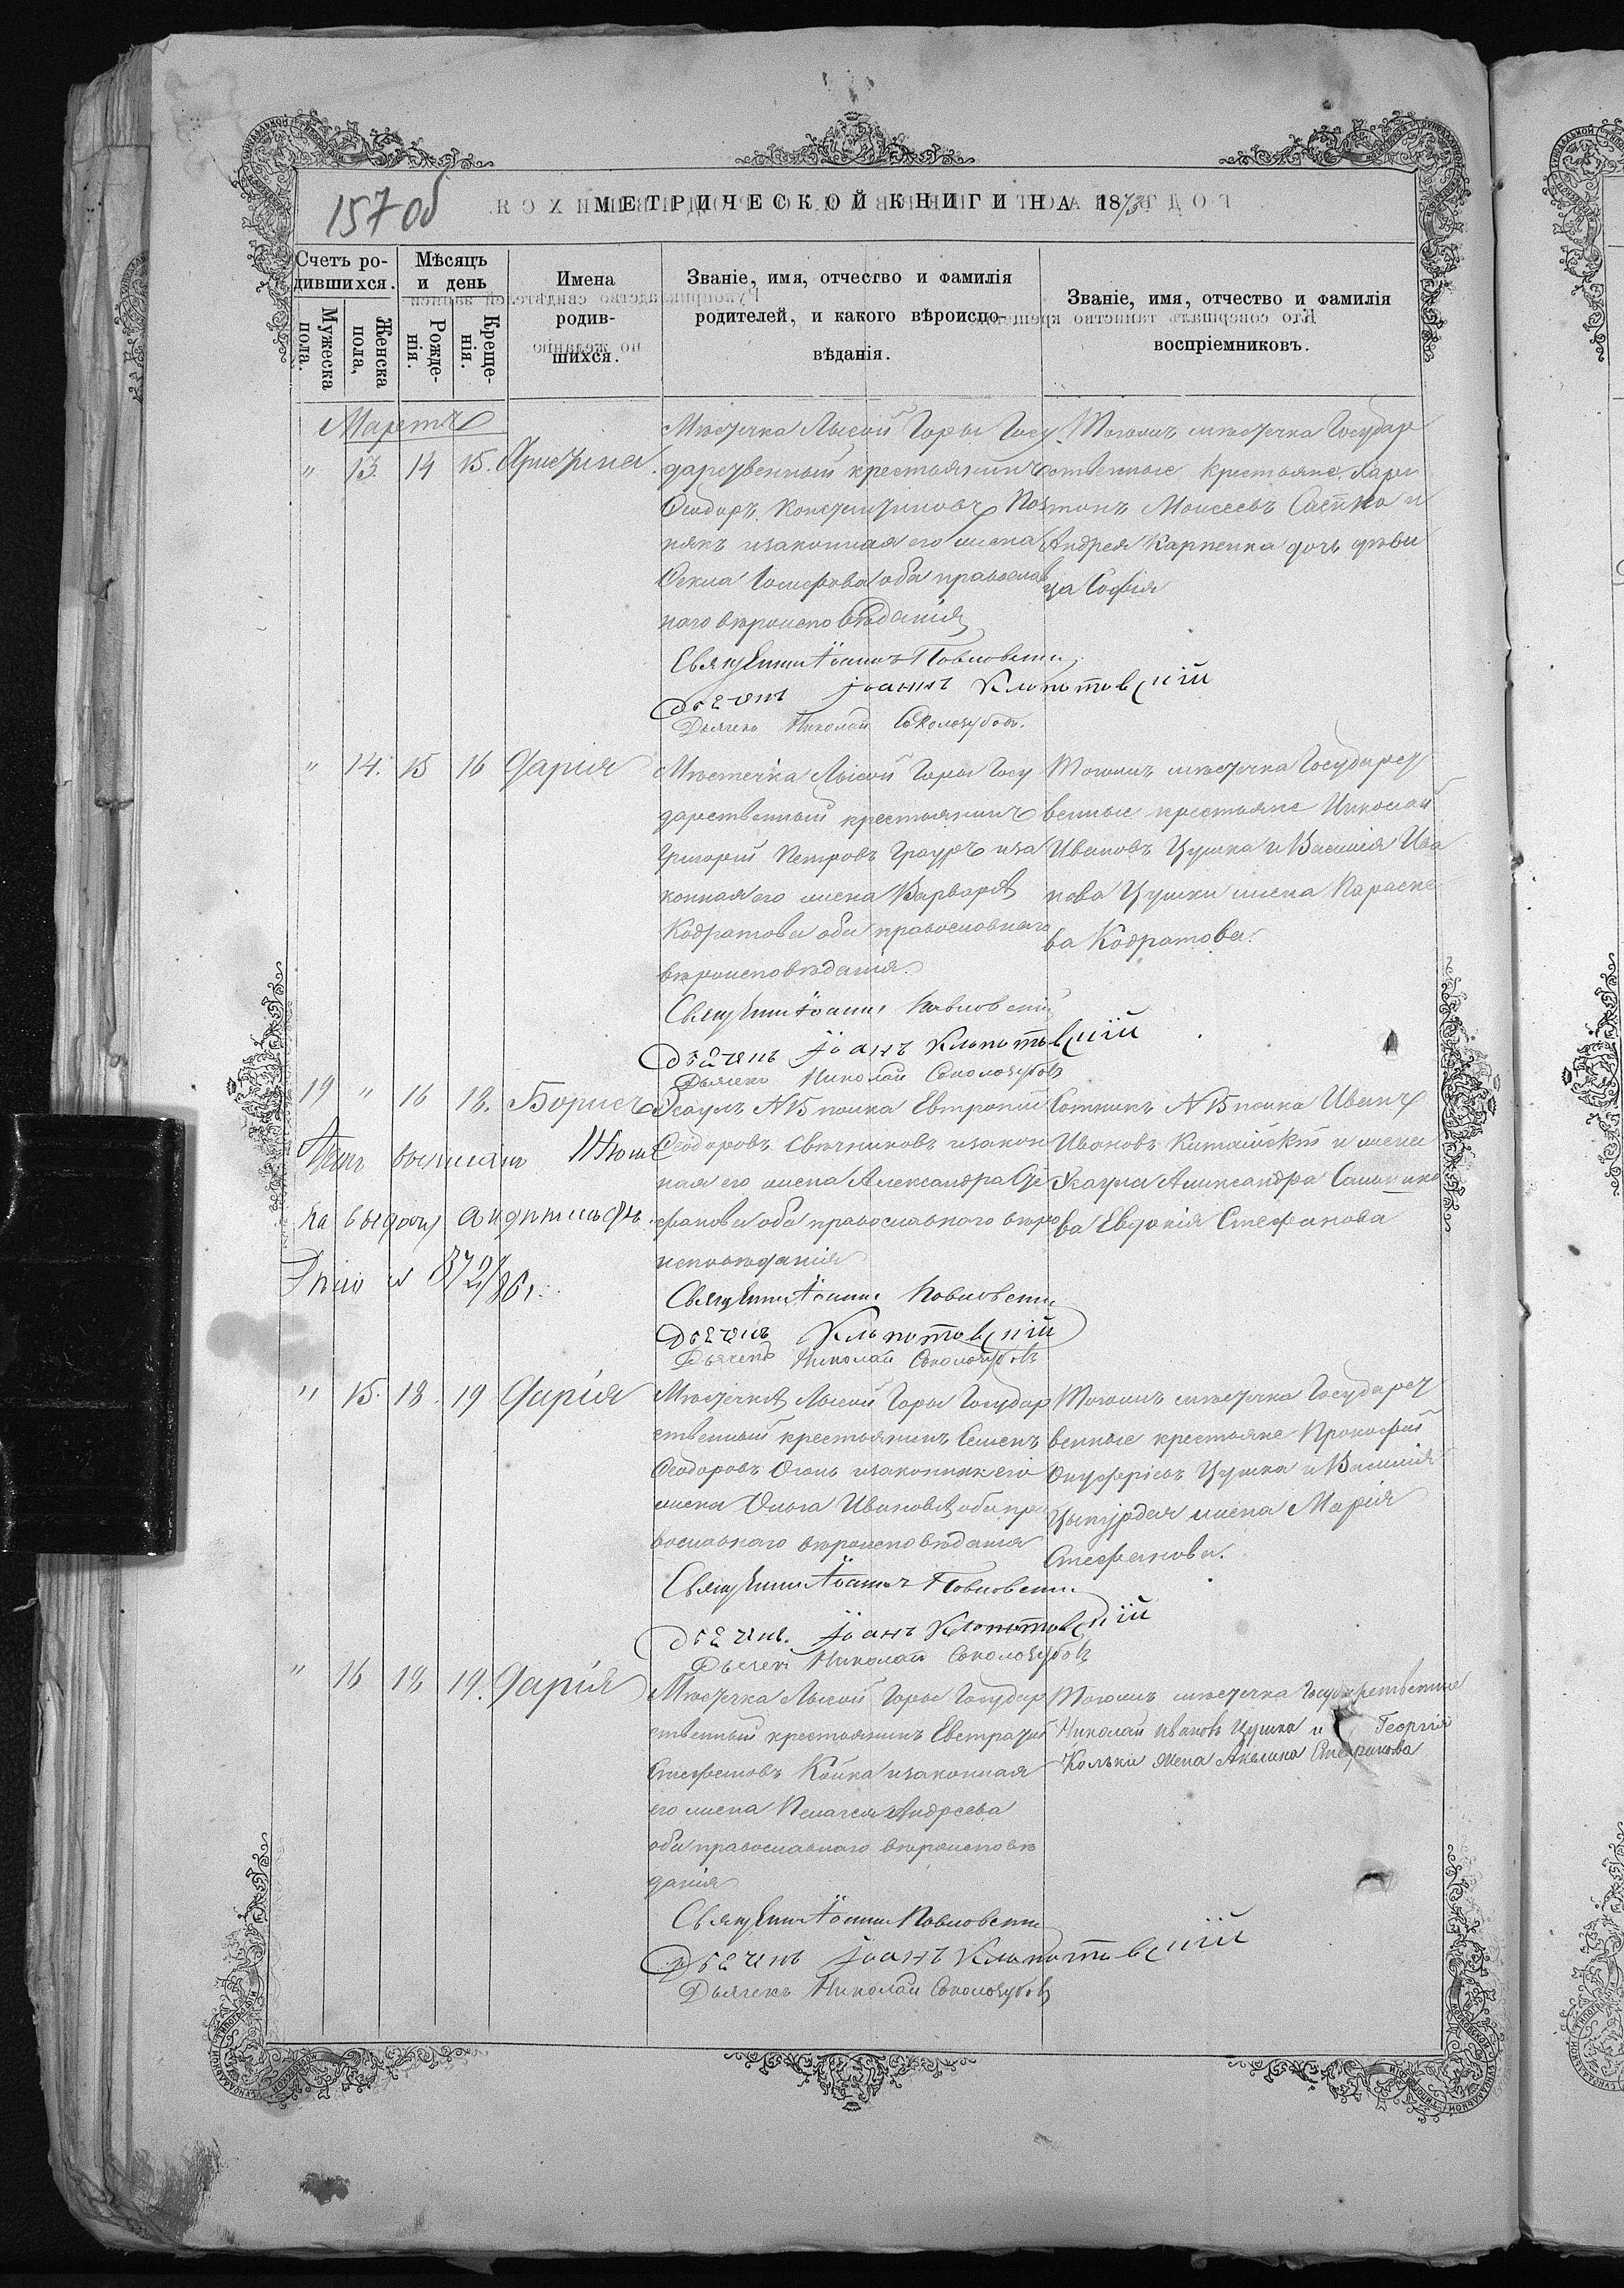 157 об
МЕТРИЧЕСКОЙ КНИГИ НА 1873
Счетъ ро-
дившихся.
Мужеска пола.
Женска пола,
Мѣсяцъ
и день
Рожде-
нія.
Креще-
нія.
Имена
родив-
шихся.
Званіе, имя, отчество и фамилія
родителей, и какого вѣроиспо-
вѣданія.
Званіе, имя, отчество и фамилія
воспріемниковъ.
Мартъ
" 13. 14 15. Христина.
Мѣстечка Лысой Горы Госу
дарственный крестьянинъ
Ѳеодоръ Константиновъ
законная его жена
Ѳекла Іосифова оба православ
наго вѣроисповѣданія
Священникъ Іоаннъ Павловскій
Дьячекъ Іоаннъ Клопотовскій
Дьячекъ Николай Соколозубовъ.
Тогожъ мѣстечка Государ
ственные крестьяне Хари
тонъ Моисеевъ и
Андрея Карпенка дочь дѣви
ца Софія
" 14. 15 16 Дарія
Мѣстечка Лысой Горы Госу
дарственный крестьянинъ
Григорій Петровъ Грауръ иза
конная его жена Варвара
Кодратова оба православнаго
вѣроисповѣданія.
Священникъ Іоаннъ Павловскій
Дьячекъ Іоанъ Клопотовскій
Дьячекъ Николай Соколозубовъ
Тогожъ мѣстечка Государст
венные крестьяне Николай
Ивановъ Цушка и Василія Ива
нова Цушки жена Параске
ва Кодратова.
19 " 16 18. Борисъ
Есаулъ №15 полка Евтропій
Ѳеодоровъ Свѣчниковъ изакон
ная его жена Александра Сте
фанова оба православнаго вѣро
исповѣданія
Священникъ Іоаннъ Павловскій
Дьячекъ Клопотовскій
Дьячекъ Николай Соколозубовъ
Сотникъ №15 полка Иванъ
Ивановъ Китайскій и жена
Есаула Александра
ва Евдокія Стефанова
на выдачу
" 15. 18. 19 Дарія
Мѣстечка Лысой Горы Государ
ственный крестьянинъ Семенъ
Ѳеодоровъ изаконная его
жена Ольга Иванова оба пра
вославнаго вѣроисповѣданія
Священникъ Іоаннъ Павловскій
Дьячекъ. Іоанъ Клопотовскій
Дьячекъ Николай Соколозубовъ
Тогожъ мѣстечка Государст
венные крестьяне Прокофій
Онуфріевъ Цушка и Василія
жена Марія
Стефанова.
" 16 18 19. Дарія
Мѣстечка Лысой Горы Государ
ственный крестьянинъ Евстратій
Стефановъ Койка изаконная
его жена Пелагея Андреева
оба православнаго вѣроисповѣ
данія
Священникъ Іоаннъ Павловскій
Дьячекъ Іоанъ Клопотовскій
Дьячекъ Николай Соколозубовъ
Тогожъ мѣстечка Государственные
Николай Ивановъ Цушка и Георгія
жена Акилина Стефанова